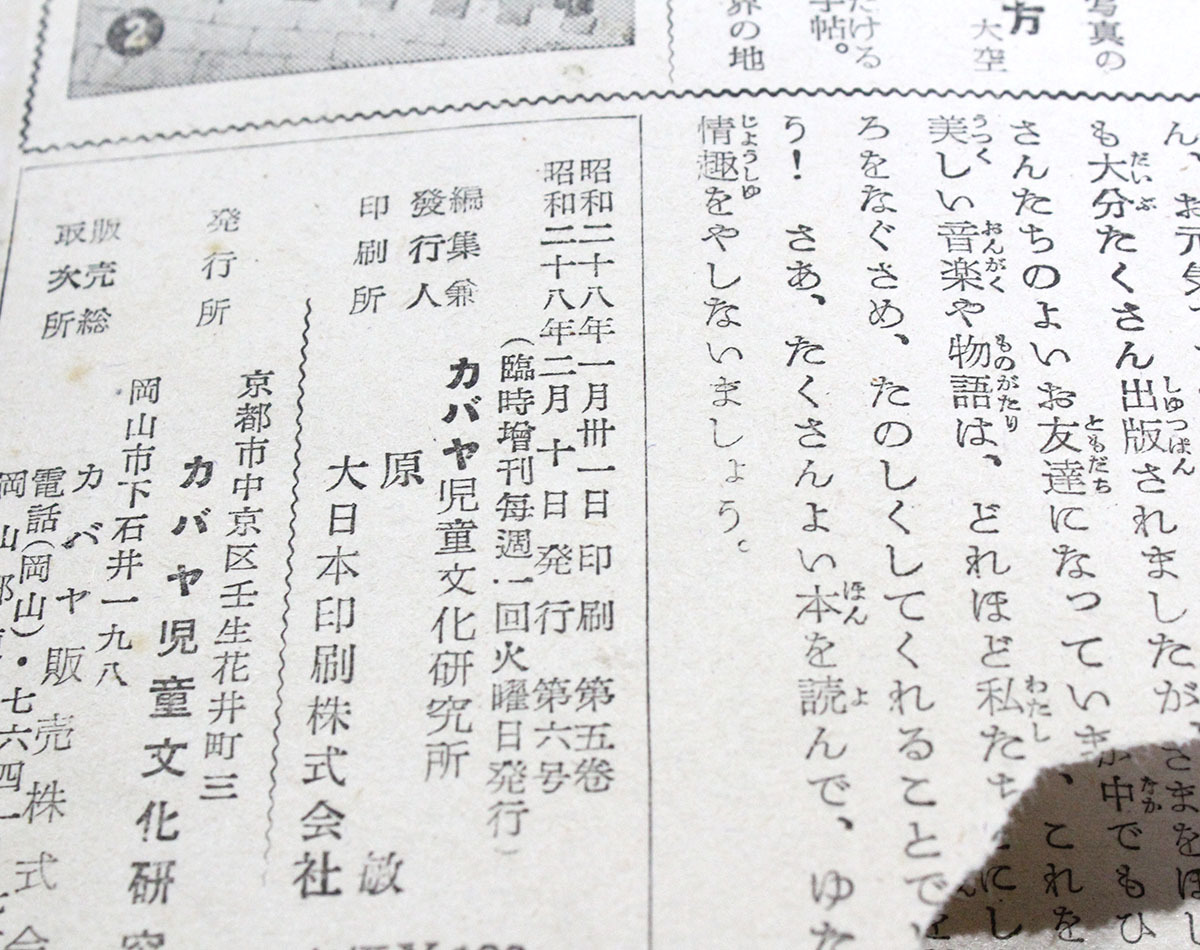 写真の
方
大空
だける
手帖。
界の地
2
ん、お元気
も大分たくさん出版されましたが
さんたちのよいお友達になっていき
美しい音楽や物語は、どれほど私たち
ろをなぐさめ、たのしくしてくれることで
う！　さあ、たくさんよい本を読んで、ゆた
情趣をやしないましょう。
さまをほし
中でもひ
、これを
にし
昭和二十八年一月卅一日印刷　第五巻
昭和二十八年二月十日発行　第六号
(臨時增刊每週一回火曜日発行)
編集兼
發行人
カバヤ児童文化研究所
原　敏
印刷所
大日本印刷株式会社
発行所
京都市中京区壬生花井町三
カバヤ児童文化研究
販売総
取次所
岡山市下石井一九八
カバヤ販売株式会
電話(岡山)・七六四一
岡山